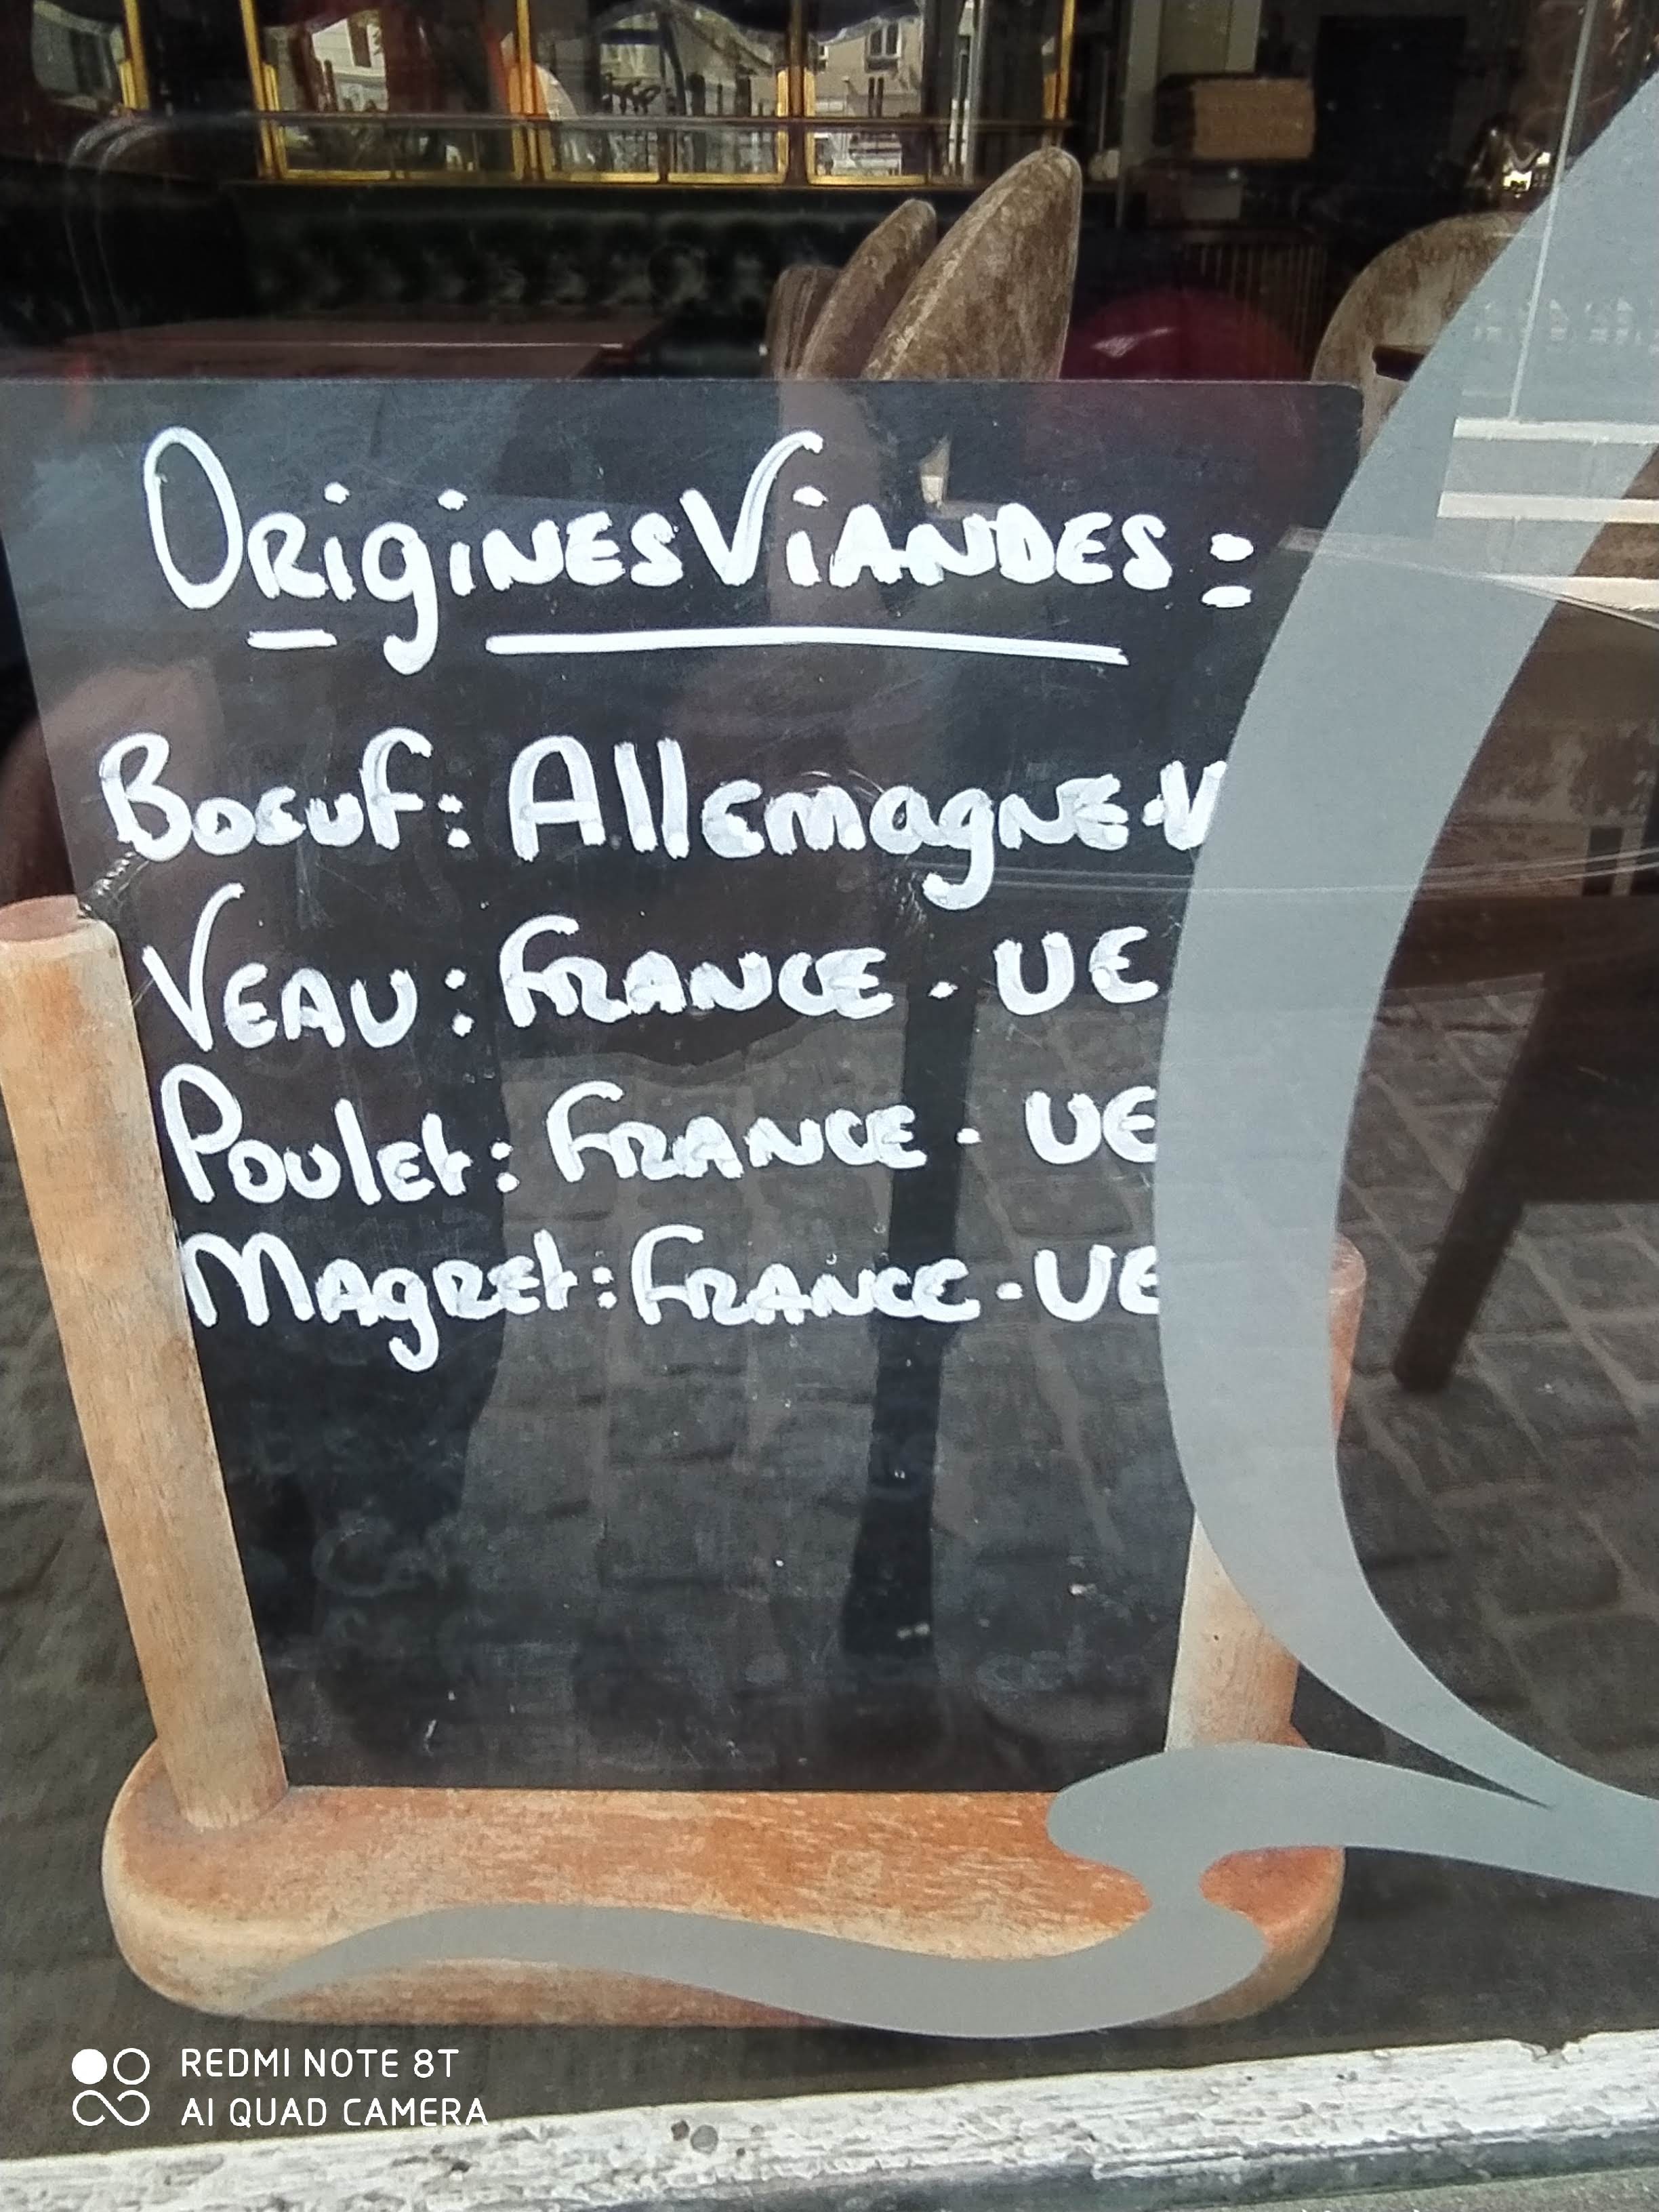 Origines Viandes :
Boeuf : Allemagne -
Veau : France - UE
Poulet : France - UE
Magret : France - UE
REDMI NOTE 8T
AI QUAD CAMERA